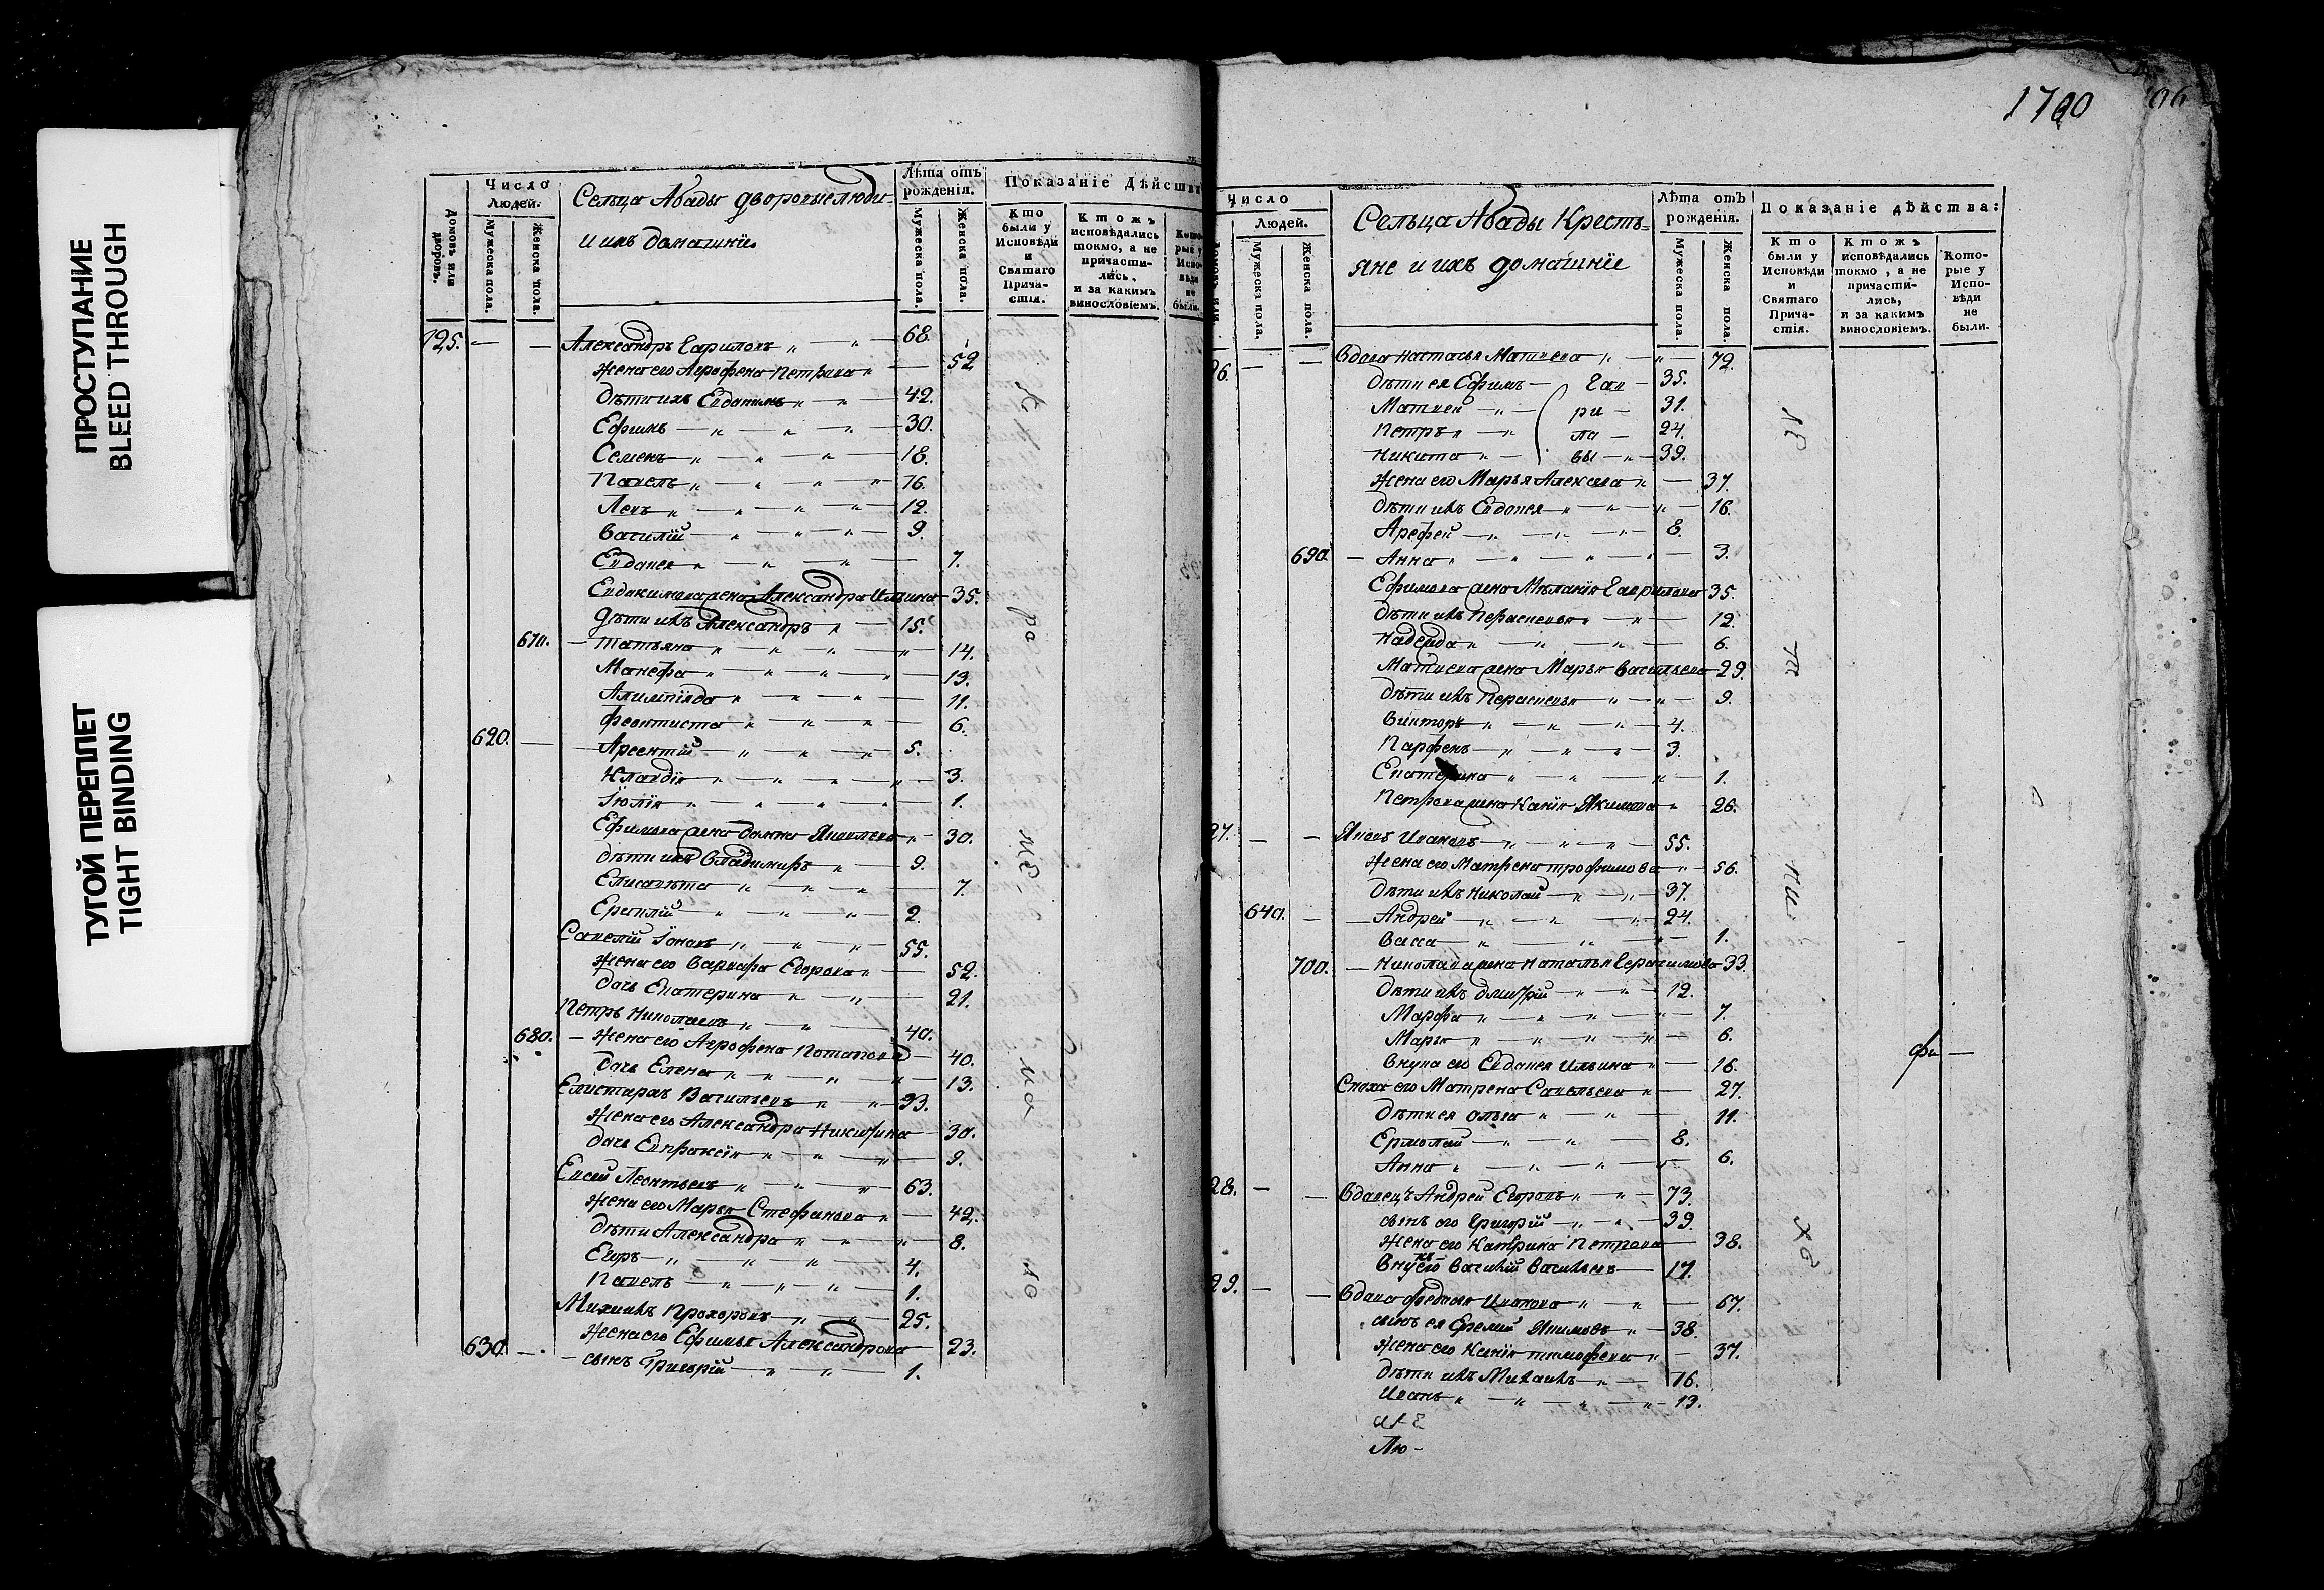 ПРОСТУПАНИЕ
BLEED THROUGH
ТУГОЙ ПЕРЕПЛЕТ
TIGHT BINDING
Домовъ или дворовъ.
Число Людей.
Мужеска пола.
Женска пола.
Сельца Абады дворовые люди
и ихъ домашнїе
Лѣта отъ рожденія.
Мужеска пола.
Женска пола.
Показаніе Дѣйства
Кто были у Исповѣди и Святаго Прича-стія.
Ктожъ исповѣдались токмо, а не причасти-лись, и за какимъ винословіемъ.
Кото-рые у Испо-вѣди не были.
125. — — Александръ Гавриловъ 68.
жена его Агрофена Петрова 52
дѣти ихъ Евдокимъ 42.
Ефимъ 30.
Семенъ 18.
Павелъ 16.
Левъ 12.
Василий 9.
Евдокея 7.
Евдокимова жена Александра Ильина 35.
дѣти ихъ Александръ 15.
670. Татьяна 14.
Манефа 13.
Алимпїада 11.
Феоктиста 6.
620. Арсентий 5.
Клавдїя 3.
Їюлїя 1.
Ефимова жена Домна Яковлева 30.
дѣти ихъ Владимиръ 9.
Елисавѣта 7.
2.
Савелий 55.
жена его Варвара Егорова 52.
дочь Екатерина 21.
Петръ Николаевъ 40.
680. жена его Агрофена Потапова 40.
дочь Елена 13.
Елистархъ Васильевъ 33.
жена его Александра Никитина 30.
дочь Евпраксїя 9.
Евсей Леонтьевъ 63.
жена его Марья Стефанова 42.
дѣти Александра 8.
Егоръ 4.
Павелъ 1.
Михаилъ Прохоровъ 25.
жена его Ефимья Александрова 23.
630. сынъ Григорїй 1.
1760
Число
Людей.
Мужеска пола.
Женска пола.
Сельца Абады Кресть=
яне и ихъ домашнїе
Лѣта отъ рожденія.
Мужеска пола.
Женска пола.
Показаніе дѣйства:
Кто были у Исповѣди и Святаго Прича-стія.
Ктожъ исповѣдались токмо, а не причасти-лись, и за какимъ винословіемъ.
Кото-рые у Испо-вѣди не были.
26. — — Вдова Настасья Матвеева 72.
дѣти ея Ефимъ Гав 35.
Матвей ри 31.
Петръ ло 24.
Никита вы 39.
жена его Марья Алексеева 37.
дѣти ихъ Евдокея 16.
Арефей 8.
690. Анна 3.
Ефимова жена Мѣланїя Гаврилова 35.
дѣти ихъ Парасковья 12.
Надежда 6.
Матвеева жена Марья Васильева 29.
дѣти ихъ Парасковья 9.
Викторъ 4.
Парфенъ 3.
Екатерина 1.
Петрова жена Якимова 26.
27. — — Яковъ Ивановъ 55.
жена его Матрена Трофимова 56.
дѣти ихъ Николай 37.
640. Андрей 24.
Васса 1.
700. Николаева жена Наталья Герасимова 33.
дѣти ихъ Дмитрїй 12.
Марфа 7.
Марья 6.
внука его Евдокея Ильина 16.
Сноха его Матрена Савельева 27.
дѣти ея Ольга 11.
Ермолай 8.
Анна 6.
28. — — Вдовецъ Андрей Егоровъ 73.
сынъ его Григорїй 39.
жена его Катерина Петрова 38.
внукъ его Василїй Васильевъ 17.
29. — — Вдова Федосья Иванова 67.
сынъ ея Якимовъ 38.
жена его Ксенїя Тимофеева 37.
дѣти ихъ Михаилъ 16.
Иванъ 13.
Лю-